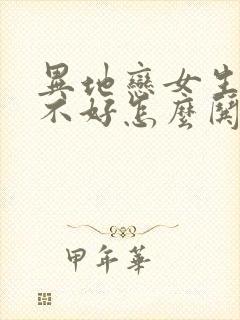 異地戀女生
不好怎麼開
甲年華